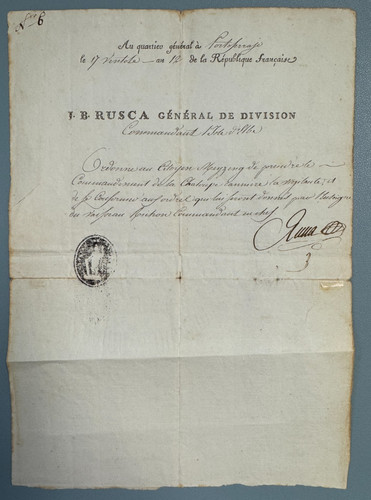 N.º 6
Au quartier général à Portoferrajo
le 9 Ventôse an 12 de la République Française
J. B. RUSCA GÉNÉRAL DE DIVISION
Commandant l'Isle d'Elbe
Ordonne au Citoyen de prendre le
Commandement de la Chaloupe canonière la vigilante, et
de se Conformer aux ordres que lui seront donnés par
du vaisseau Commandant en chef
Rusca
3